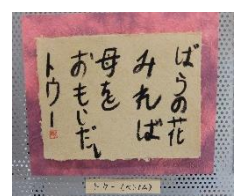 ばらの花
みれば
母を
おもいだし
トウー